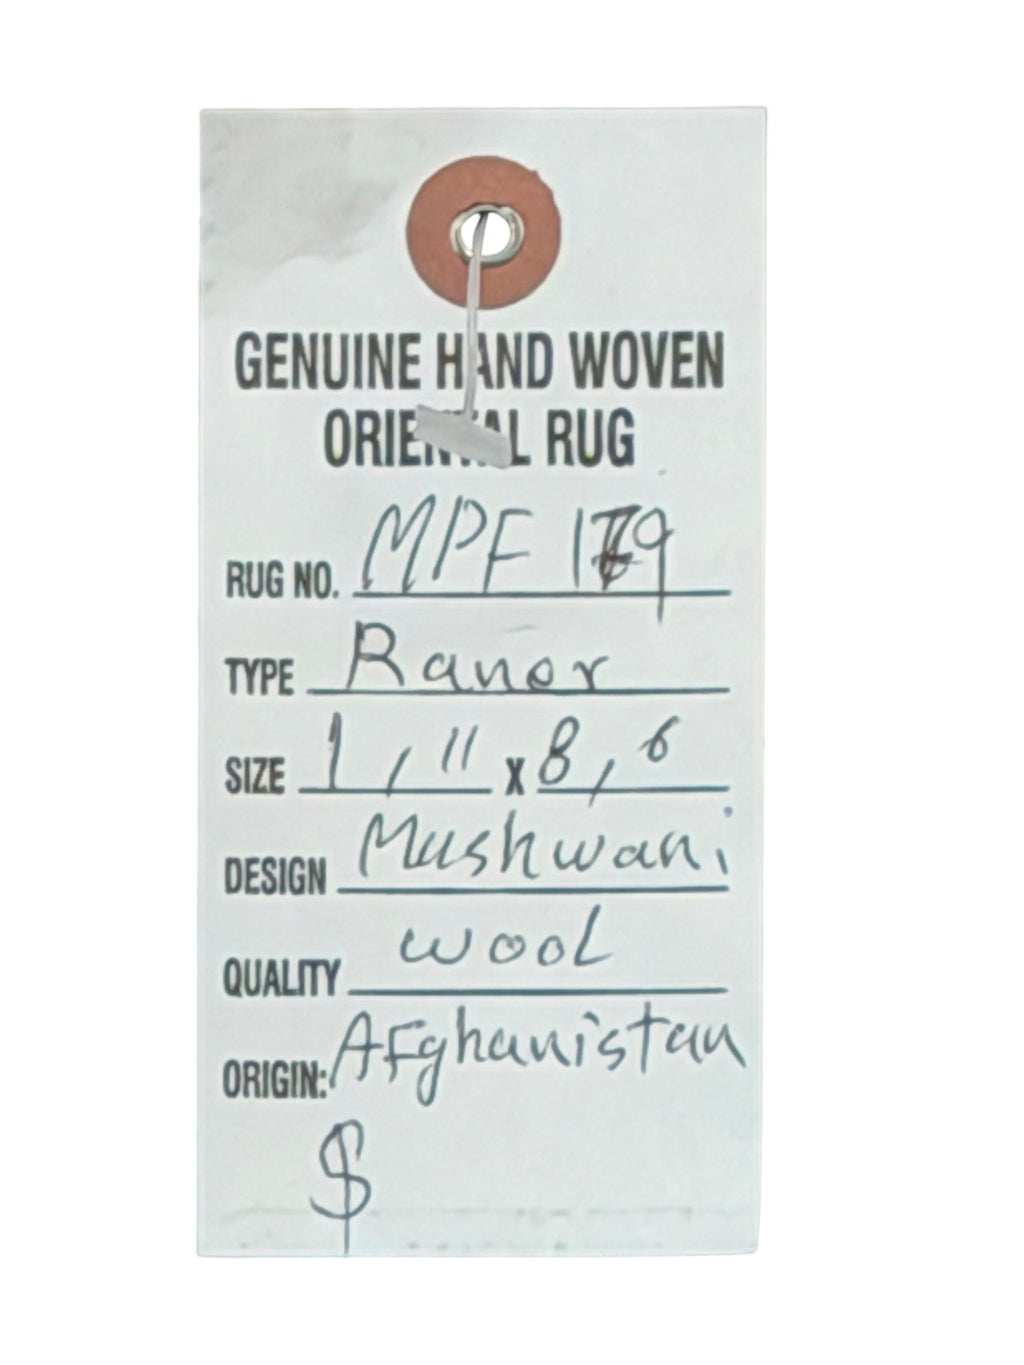 GENUINE HAND WOVEN
ORIENTAL RUG
RUG NO. MPF
TYPE Raner
SIZE 1, 11 X 8, 6
DESIGN Mushwani
QUALITY wool
ORIGIN: Afghanistan
$